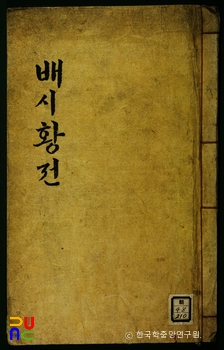 배시황전
© 한국학중앙연구원